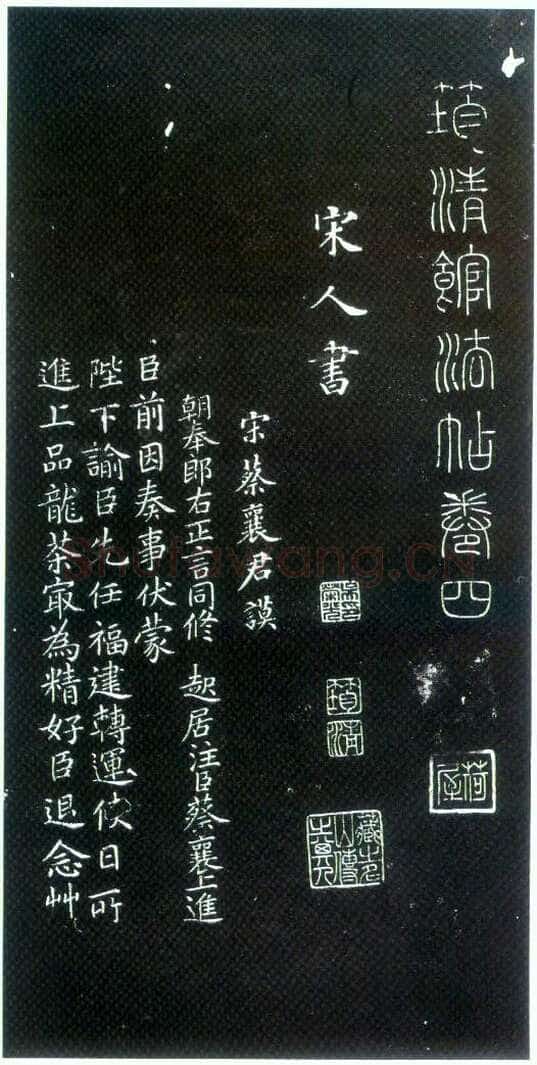 筠清館法帖卷四
荷屋
宋人書
筠清
宋蔡襄君謨
朝奉郎右正言同修 起居注臣蔡襄上進
臣前因奏事伏蒙
陛下諭臣先任福建轉運使日所
進上品龍茶冣為精好臣退念艸
Shufawang.CN